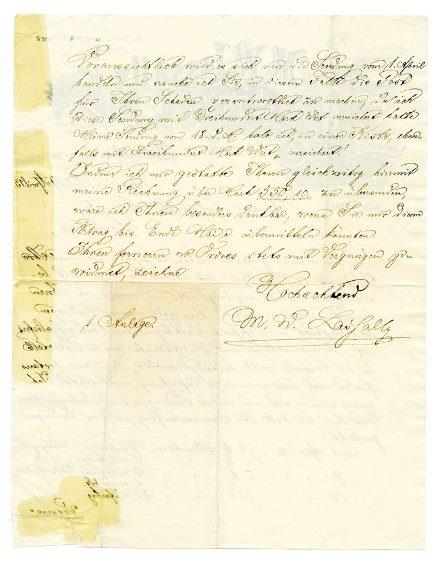 Voraussichtlich wird es sich um die Sendung vom 1. April
handeln und rate ich Sie, in diesem Falle die Post
für Ihren Schaden verantwortlich zu machen, da ich
diese Sendung mit Dreihundert Mark Wert versichert hatte
Meine Sendung vom 18. d. M. habe ich, an einer Kiste, eben
falls mit Dreihundert Mark Wert, versichert!
Indem ich mir gestatte Ihnen gleichzeitig hiermit
meine Rechnung über Mark 350,10. zu übersenden
wäre ich Ihnen besonders dankbar, wenn Sie mir diesen
Betrag bis Ende übermitteln könnten.
Ihren ferneren w. Ordres stets mit Vergnügen ge
widmet, zeichne
Hochachtend
M. W. Lassally
1 Anlage.